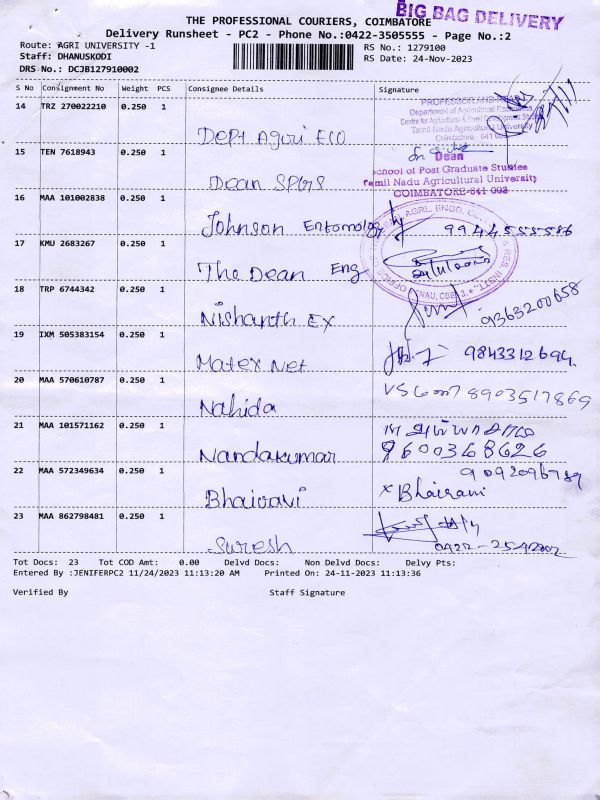 BIG BAG DELIVERY
THE PROFESSIONAL COURIERS, COIMBATORE
Delivery Runsheet - PC2 - Phone No.:0422-3505555 - Page No.:2
Route: AGRI UNIVERSITY -1
RS No.: 1279100
Staff: DHANUSKODI
RS Date: 24-Nov-2023
DRS No.: DCJB127910002
S No Consignment No Weight PCS Consignee Details Signature
14 TRZ 270022210 0.250 1
PROFESSOR AND
Department of Agricultural Economics
Centre for Agricultural & Rural Development Studies
Tamil Nadu Agricultural University
Coimbatore - 641 003
Dept Agri ECO
15 TEN 7618943 0.250 1
Dean
School of Post Graduate Studies
Dean SPGS
Tamil Nadu Agricultural University
COIMBATORE-641 003
16 MAA 101002838 0.250 1
Johnson Entomology
9944555586
17 KMU 2683267 0.250 1
The Dean Eng
18 TRP 6744342 0.250 1
TNAU, CBE-3.
Nishanth EX
9363200658
19 IXM 505383154 0.250 1
Matex Net
9843312694
20 MAA 570610787 0.250 1
8903517869
Nahida
21 MAA 101571162 0.250 1
Nandakumar
9600368626
22 MAA 572349634 0.250 1
9092096789
Bhairavi
x Bhairavi
23 MAA 862798481 0.250 1
Suresh
Tot Docs: 23 Tot COD Amt: 0.00 Delvd Docs: Non Delvd Docs: Delvy Pts:
Entered By :JENIFERPC2 11/24/2023 11:13:20 AM Printed On: 24-11-2023 11:13:36
Verified By Staff Signature